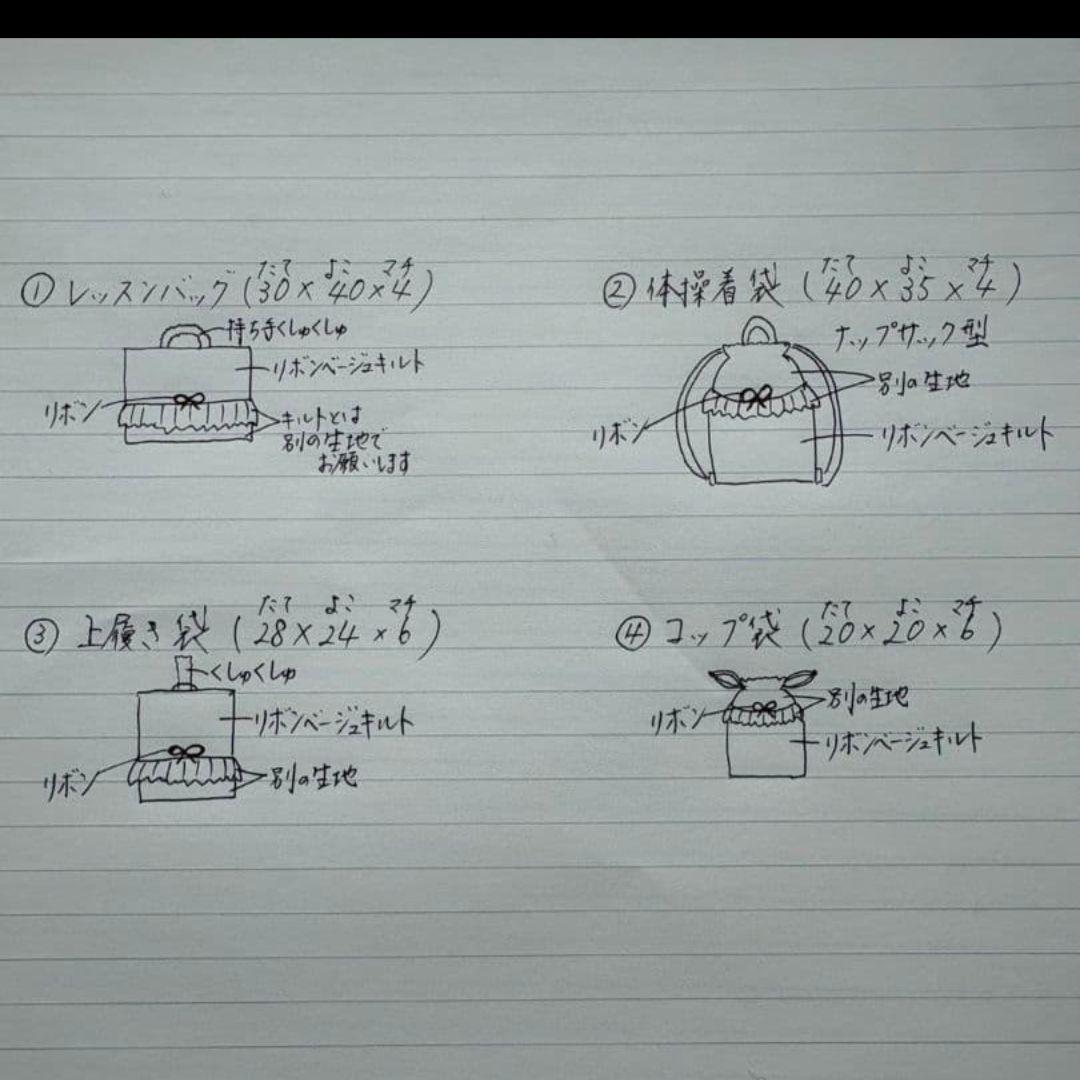 たて よこ マチ
① レッスンバッグ (30×40×4)
持ち手くしゅくしゅ
リボンベージュキルト
リボン
キルトとは
別の生地で
お願いします
たて よこ マチ
② 体操着袋 (40×35×4)
ナップサック型
別の生地
リボン
リボンベージュキルト
たて よこ マチ
③ 上履き袋 (28×24×6)
くしゅくしゅ
リボンベージュキルト
リボン
別の生地
たて よこ マチ
④ コップ袋 (20×20×6)
別の生地
リボン
リボンベージュキルト